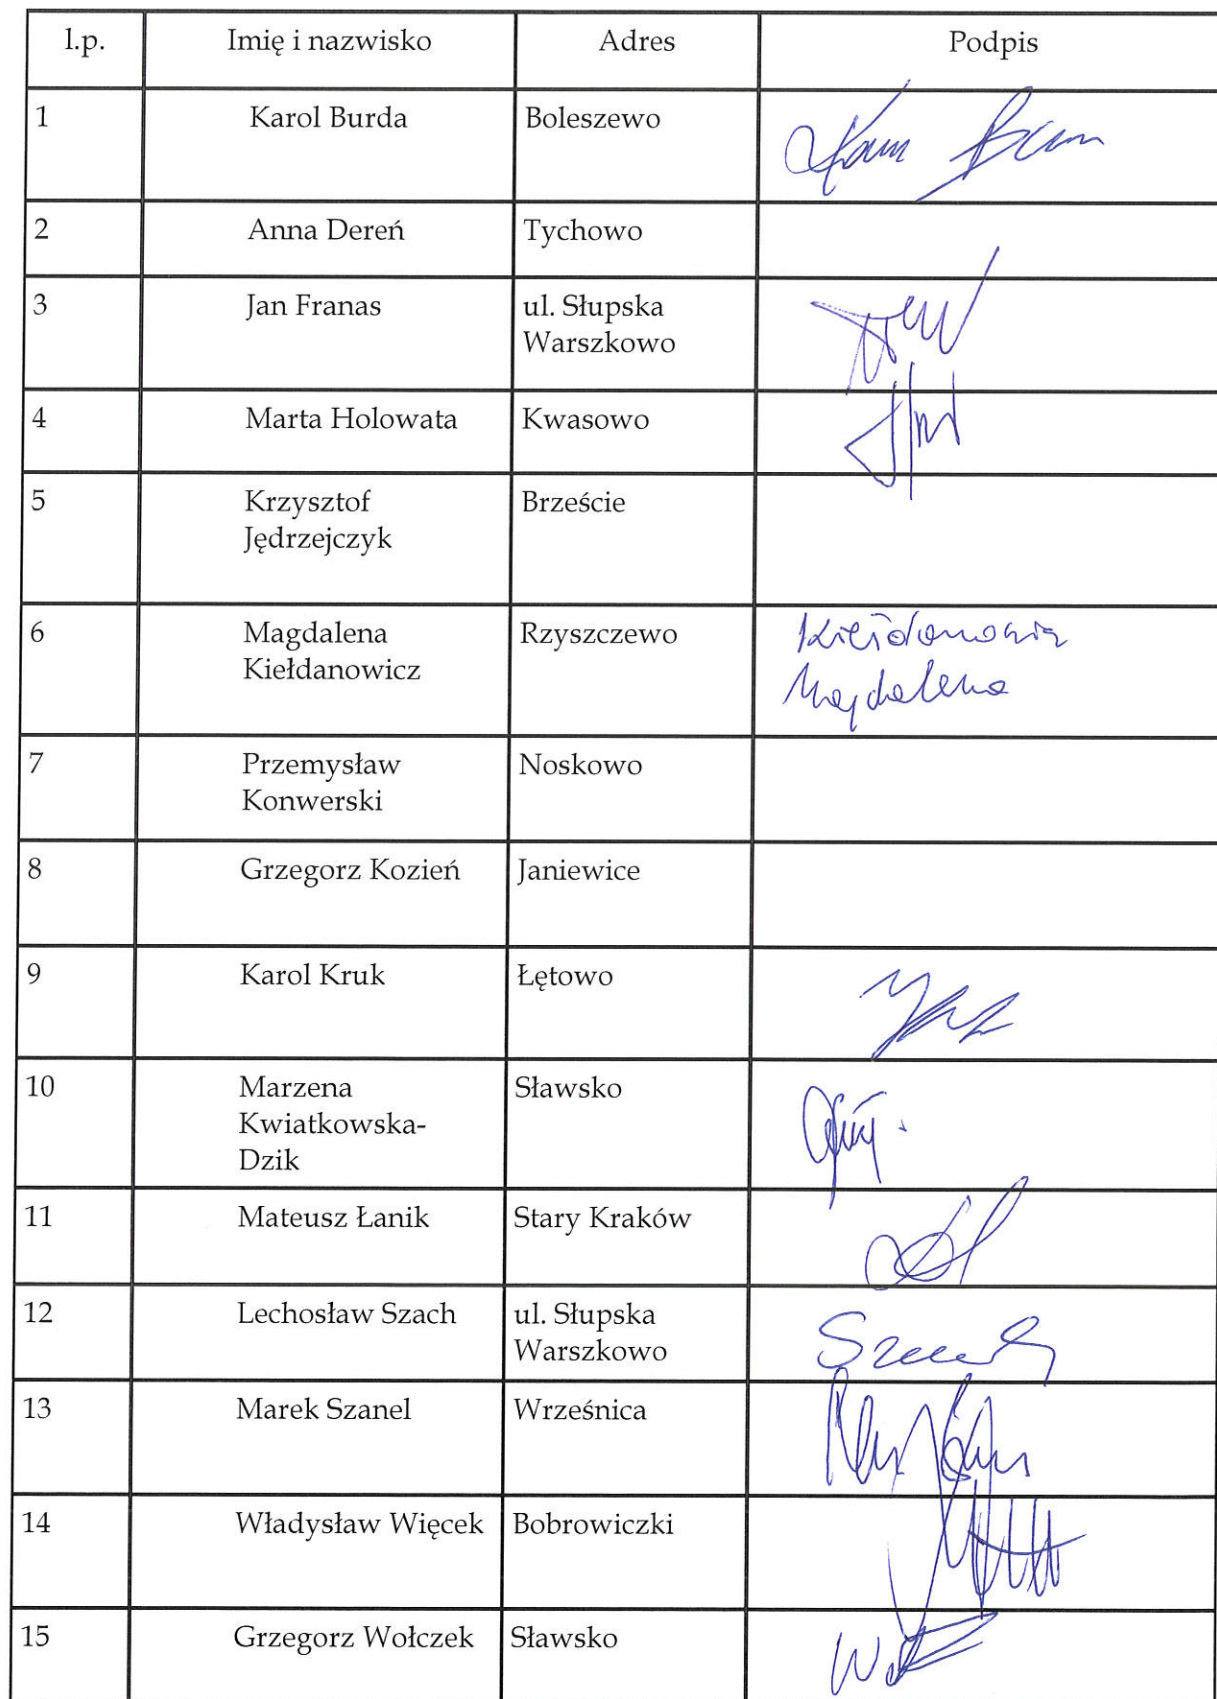 l.p. Imię i nazwisko Adres Podpis
1 Karol Burda Boleszewo
2 Anna Dereń Tychowo
3 Jan Franas ul. Słupska
Warszkowo
4 Marta Holowata Kwasowo
5 Krzysztof Brzeście
Jędrzejczyk
6 Magdalena Rzyszczewo
Kiełdanowicz Magdalena
7 Przemysław Noskowo
Konwerski
8 Grzegorz Kozień Janiewice
9 Karol Kruk Łętowo
10 Marzena Sławsko
Kwiatkowska-
Dzik
11 Mateusz Łanik Stary Kraków
12 Lechosław Szach ul. Słupska
Warszkowo
13 Marek Szanel Wrześnica
14 Władysław Więcek Bobrowiczki
15 Grzegorz Wołczek Sławsko